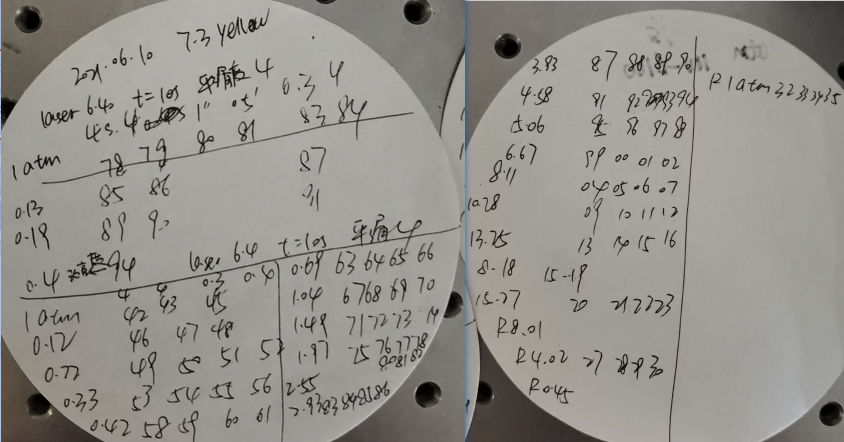 2021.06.10 7.3 yellow
laser 6.40 t=10s 4 0.3 4
4 s. 4 1" 0.5"
1 atm 78 79 80 81 83 84
0.13 85 86 87
0.19 89 90 91
0.4 94 laser 6.4 t=10s
4 4 0.3 0.4
1 atm 42 43 45
0.12 46 47 48
0.22 49 50 51 52
0.33 53 54 55 56
0.42 58 59 60 61
0.69 63 64 65 66
1.04 67 68 69 70
1.49 71 72 73 74
1.97 75 76 77 78
80 81 82
2.55
2.93 83 84 85 86
3.93 87 88 89 90
4.58 91 92 93 94
5.06 95 96 97 98
6.67 99 00 01 02
8.11 04 05 06 07
10.28 09 10 11 12
13.25 13 14 15 16
8-18 15-19
15.27 20 21 22 23
R8.01
R4.02 27 28 29 30
R0.45
R 1 atm 32 33 34 35